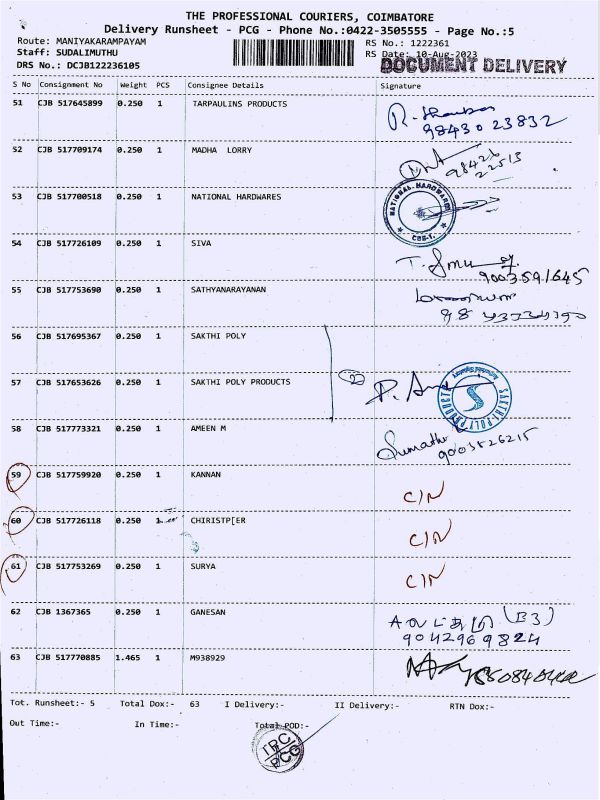 THE PROFESSIONAL COURIERS, COIMBATORE
Delivery Runsheet - PCG - Phone No.:0422-3505555 - Page No.:5
Route: MANIYAKARAMPAYAM RS No.: 1222361
Staff: SUDALIMUTHU RS Date: 10-Aug-2023
DRS No.: DCJB122236105 DOCUMENT DELIVERY
S No Consignment No Weight PCS Consignee Details Signature
51 CJB 517645899 0.250 1 TARPAULINS PRODUCTS
98430 23832
52 CJB 517709174 0.250 1 MADHA LORRY
98426
22513
53 CJB 517700518 0.250 1 NATIONAL HARDWARES
NATIONAL HARDWARES
CBE-1.
54 CJB 517726109 0.250 1 SIVA
9003591645
55 CJB 517753690 0.250 1 SATHYANARAYANAN
56 CJB 517695367 0.250 1 SAKTHI POLY
57 CJB 517653626 0.250 1 SAKTHI POLY PRODUCTS (2)
Authorised Signatory
SAKTHI POLY PRODUCTS
58 CJB 517773321 0.250 1 AMEEN M
Sumathi
9003526215
59 CJB 517759920 0.250 1 KANNAN C/N
60 CJB 517726118 0.250 1 CHIRISTP[ER C/N
61 CJB 517753269 0.250 1 SURYA C/N
62 CJB 1367365 0.250 1 GANESAN (B3)
9042969824
63 CJB 517770885 1.465 1 M938929
Tot. Runsheet:- 5 Total Dox:- 63 I Delivery:- II Delivery:- RTN Dox:-
Out Time:- In Time:- Total POD:-
TPC
PCG